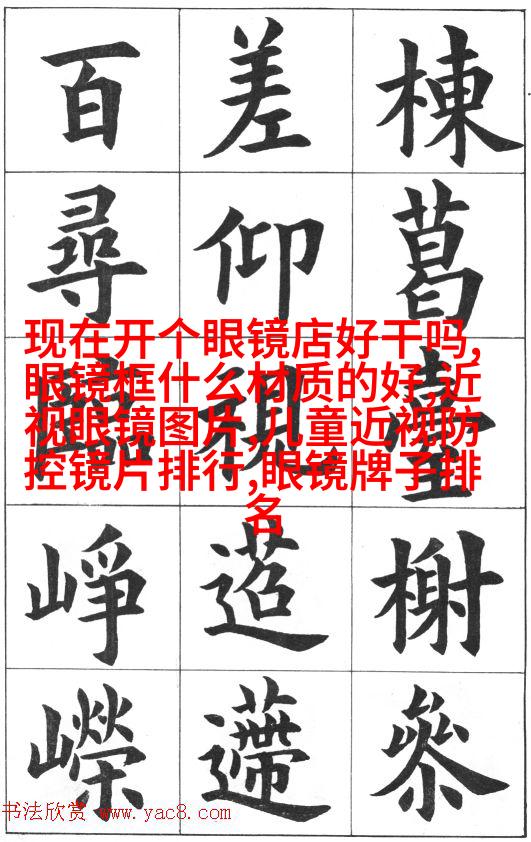 棟葛臺榭參
差仰視迢遰
百尋崢嶸
现在开个眼镜店好干吗,
眼镜框什么材质的好,近
视眼镜图片,儿童近视防
控镜片排行,眼镜牌子排
名
书法欣赏 www.yac8.com